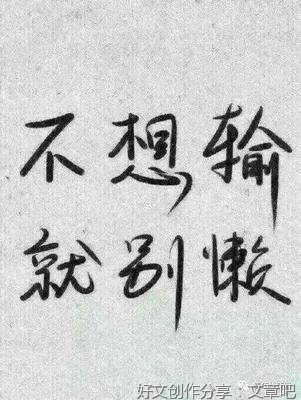 不想输
就别懒
好文创作分享：文章吧